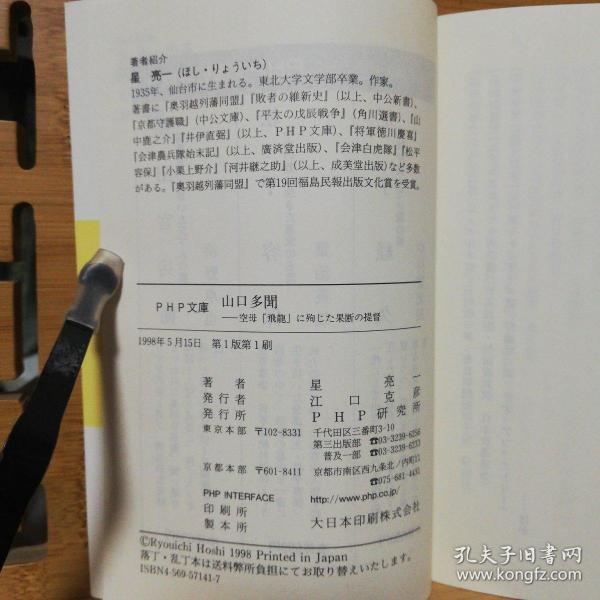 著者紹介
星　亮一（ほし・りょういち）
1935年、仙台市に生まれる。東北大学文学部卒業。作家。
著書に『奥羽越列藩同盟』『敗者の維新史』（以上、中公新書）、
『京都守護職』（中公文庫）、『平太の戊辰戦争』（角川選書）、『山
中鹿之介』『井伊直弼』（以上、ＰＨＰ文庫）、『将軍徳川慶喜』
『会津農兵隊始末記』（以上、廣済堂出版）、『会津白虎隊』『松平
容保』『小栗上野介』『河井継之助』（以上、成美堂出版）など多数
がある。『奥羽越列藩同盟』で第19回福島民報出版文化賞を受賞。
ＰＨＰ文庫　山口多聞
――空母「飛龍」に殉じた果断の提督
1998年５月15日　第１版第１刷
著者　星　亮一
発行者　江口克彦
発行所　ＰＨＰ研究所
東京本部　〒102-8331　千代田区三番町3-10
第三出版部　☎03-3239-6256
普及一部　☎03-3239-6233
京都本部　〒601-8411　京都市南区西九条北ノ内町11
☎075-681-4431
PHP INTERFACE　http://www.php.co.jp/
印刷所
製本所　大日本印刷株式会社
©Ryouichi Hoshi 1998 Printed in Japan
落丁・乱丁本は送料弊所負担にてお取り替えいたします。
ISBN4-569-57141-7
孔夫子旧书网
www.kongfz.com